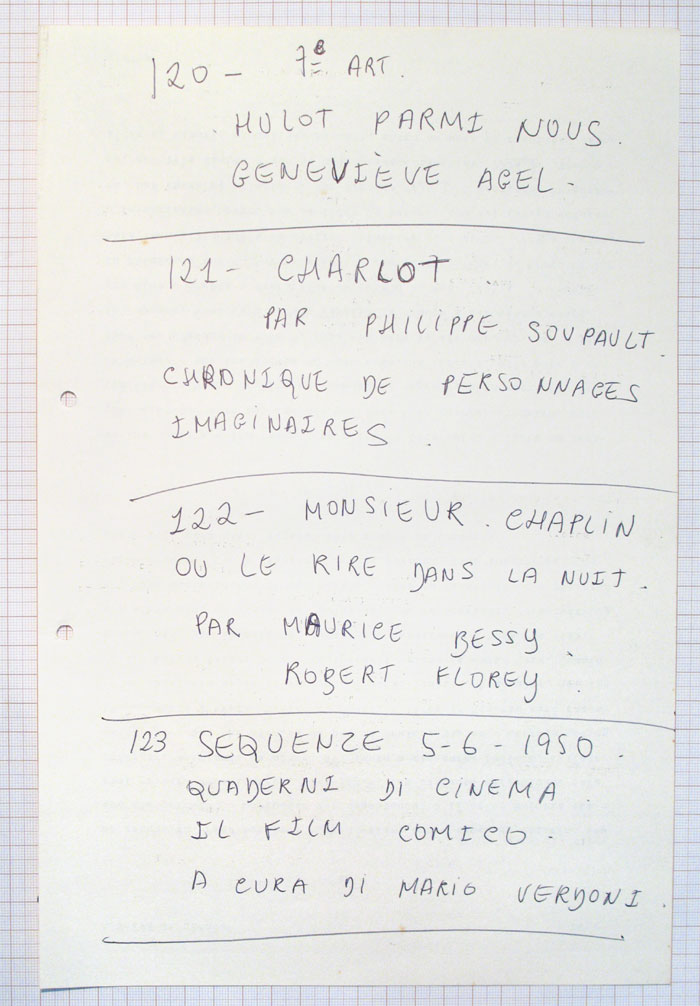 120 - 7e ART.
HULOT PARMI NOUS.
GENEVIÈVE AGEL -
121 - CHARLOT
PAR PHILIPPE SOUPAULT.
CHRONIQUE DE PERSONNAGES
IMAGINAIRES.
122 - MONSIEUR . CHAPLIN
OU LE RIRE DANS LA NUIT.
PAR MAURICE BESSY.
ROBERT FLOREY.
123 SEQUENZE 5-6-1950.
QUADERNI DI CINEMA
IL FILM COMICO.
A CURA DI MARIO VERDONI.